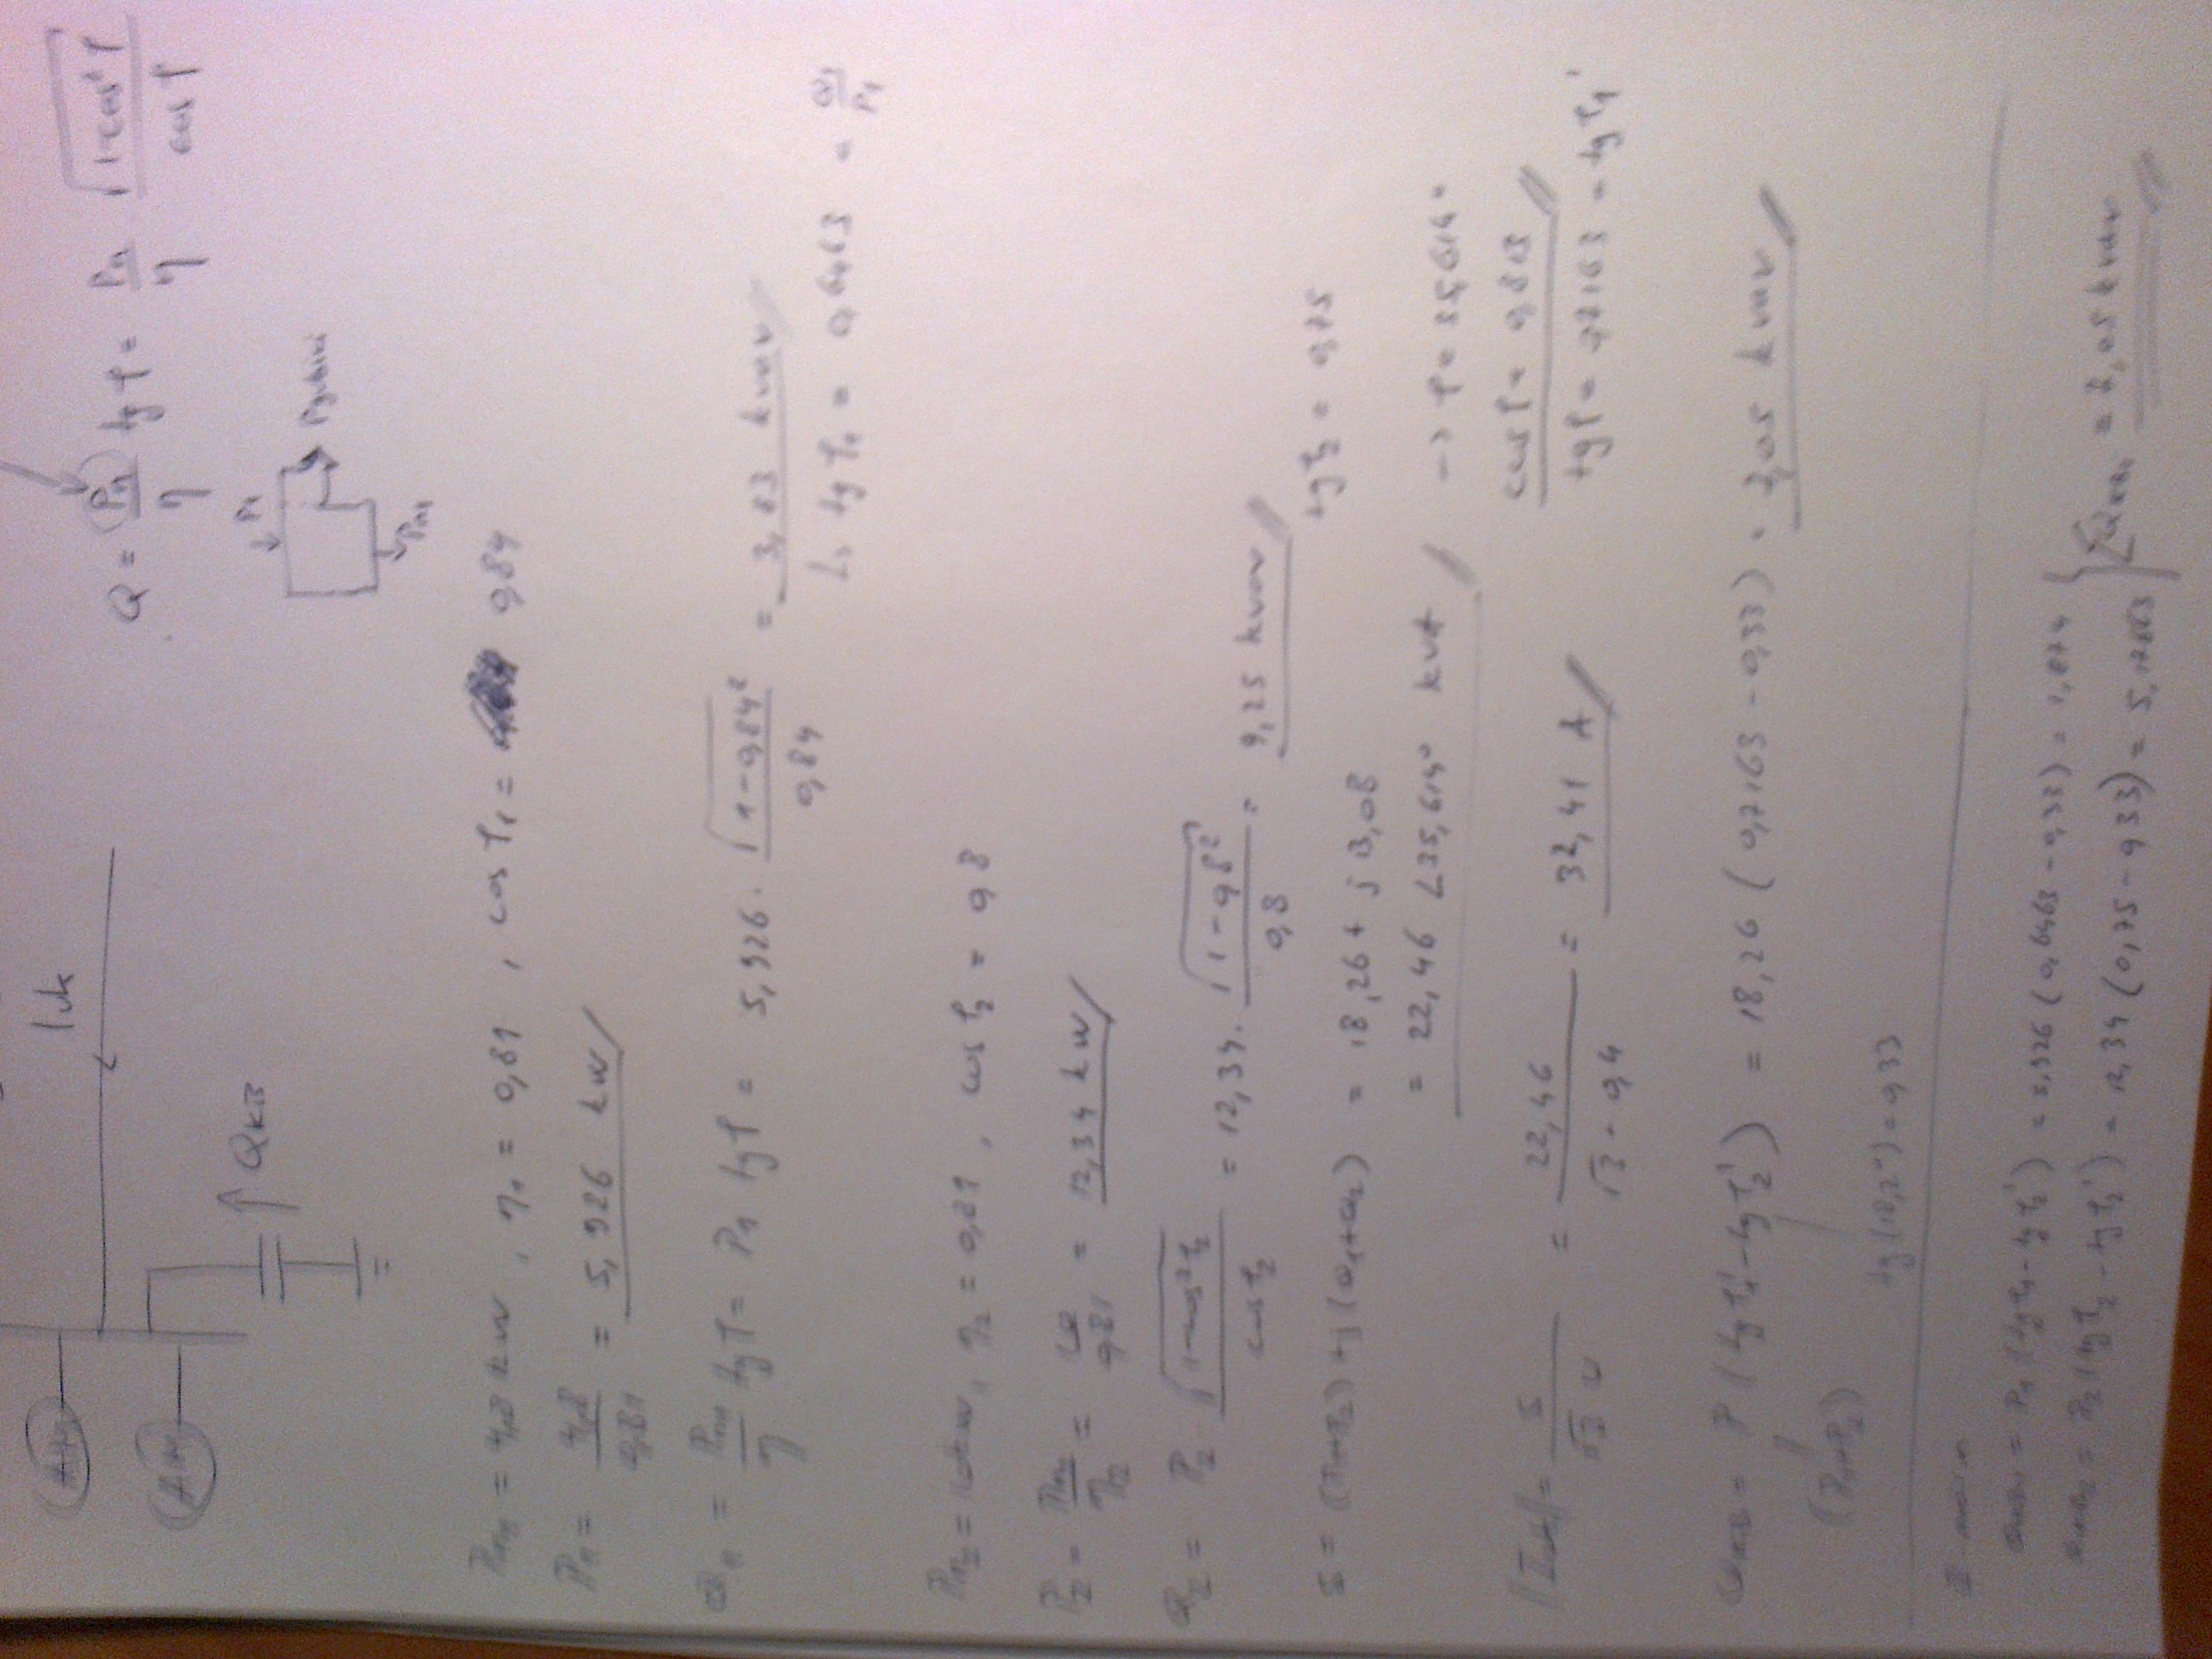 Iuk
Q = Pn/η tg φ = Pn/η √(1-cos²φ)/cos φ
QKB
P1
Pgubici
Pm1
Pm1 = 4,8 kW , η1 = 0,81 , cos φ1 = 0,84
P1 = 4,8/0,81 = 5,926 kW
Q1 = Pm1/η tg φ = P1 tg φ = 5,926 · √(1-0,84²)/0,84 = 3,83 kvar
↳ tg φ1 = 0,6463 = Q1/P1
Pm2 = 10 kW, η2 = 0,81 , cos φ2 = 0,8
P2 = Pm2/η2 = 10/0,81 = 12,34 kW
Q2 = P2 · √(1-cos²φ2)/cos φ2 = 12,34 · √(1-0,8²)/0,8 = 9,25 kvar
tg φ2 = 0,75
S = (P1+P2)+j(Q1+Q2) = 18,26 + j 13,08
= 22,46 ∠35,614° kVA → φ = 35,614°
cos φ = 0,813
|Iuk| = S/√3 U = 22,46/√3 · 0,4 = 32,41 A
tg φ = 0,7163 = tg φ1'
QKB = P (tg φ1' - tg φ2') = 18,26 (0,7163 - 0,33) = 7,05 kvar
(P1+P2)
tg(18,2°) = 0,33
QKB1 = P1 (tg φ1 - tg φ2') = 5,926 (0,6463 - 0,33) = 1,874
QKB2 = P2 (tg φ2 - tg φ2') = 12,34 (0,75 - 0,33) = 5,1